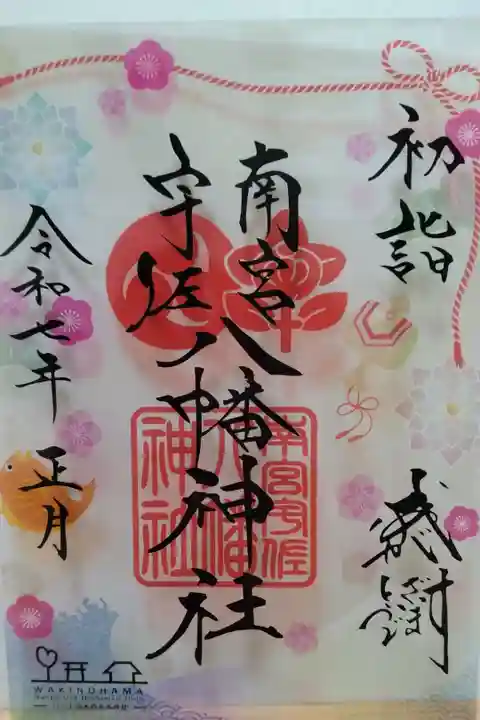 初詣
感謝
南宮
宇佐
八幡神社
令和七年 正月
南宮宇佐
八幡
神社
WAKINOHAMA